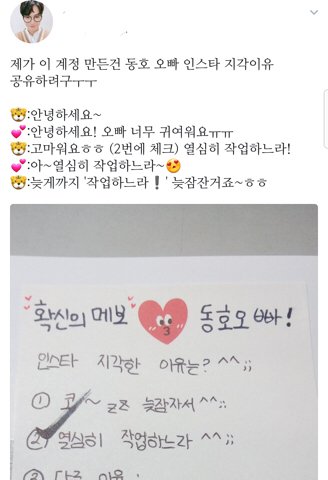 제가 이 계정 만든건 동호 오빠 인스타 지각이유
공유하려구ㅜㅜ
🐯:안녕하세요~
💕:안녕하세요! 오빠 너무 귀여워요ㅠㅠ
🐯:고마워요ㅎㅎ (2번에 체크) 열심히 작업하느라!
💕:아~열심히 작업하느라~😍
🐯:늦게까지 '작업하느라❗' 늦잠잔거죠~ㅎㅎ
확신의 메보 동호오빠!
인스타 지각한 이유는? ^^;;
① 코~ zz 늦잠자서 ^^;;
② 열심히 작업하느라 ^^;;
③ 다른 이유 :